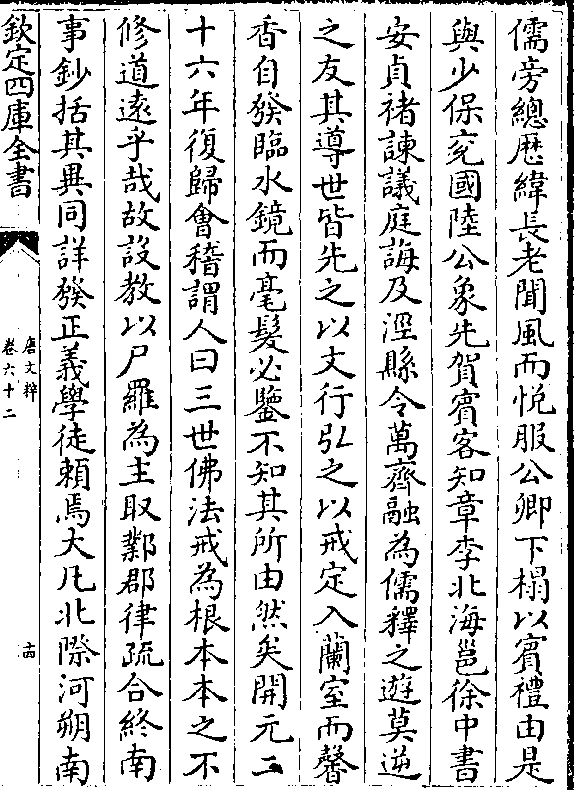 儒旁總歷緯長老聞風而悦服公卿下榻以賓禮由是
與少保兖國陸公象先賀賓客知章李北海邕徐中書
安貞禇諫議庭誨及涇縣令萬齊融為儒釋之遊莫逆
之友其導世皆先之以文行弘之以戒定入蘭室而馨
香自發臨水鏡而毫髮必鑒不知其所由然矣開元二
十六年復歸會稽謂人曰三世佛法戒為根本本之不
修道逺乎哉故設教以尸羅為主取鄴郡律疏合終南
事鈔括其異同詳發正義學徒賴焉大凡北際河朔南
欽定四庫全書
唐文粹
卷六十二
十四